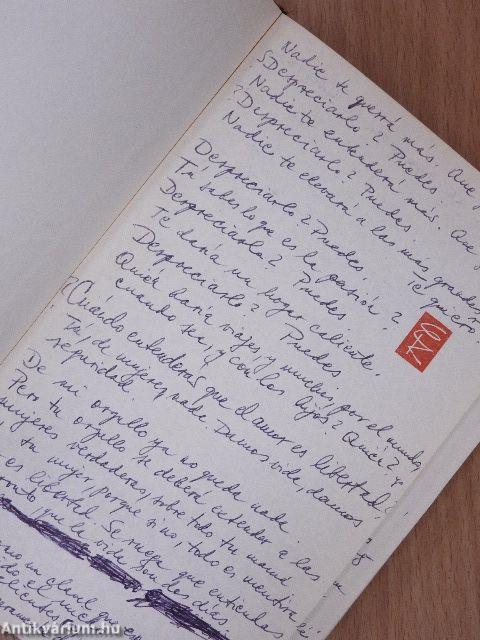 Nadie te querrá más. Que y
¿Despreciarlo? Puedes.
Nadie te entenderá más. Que y
¿Despreciarlo? Puedes
Nadie te elevará a las más grandes
Te quiero.
Despreciarlo? Puedes.
Tú sabes lo que es la pasión?
Despreciarla? Puedes
Te daría un hogar caliente,
Despreciarlo? Puedes
Quién daría viajes, y muchos, por el mundo,
cuando sea, y con los hijos? Quién? Yo
¿Cuándo entenderas que el amor es libertad?
Tú, de mujeres, nada. Damos vida, damos
De mi orgullo ya no queda nada.
Pero tu orgullo se deberá entender a las
mujeres verdaderas, sobre todo tu mamá
y tu mujer, porque si no, todo es mentira
es libertad. Se ruega que entiendas
que la vida son dos días.
como un clavel
Antikvárium.hu
Antikvarium.hu